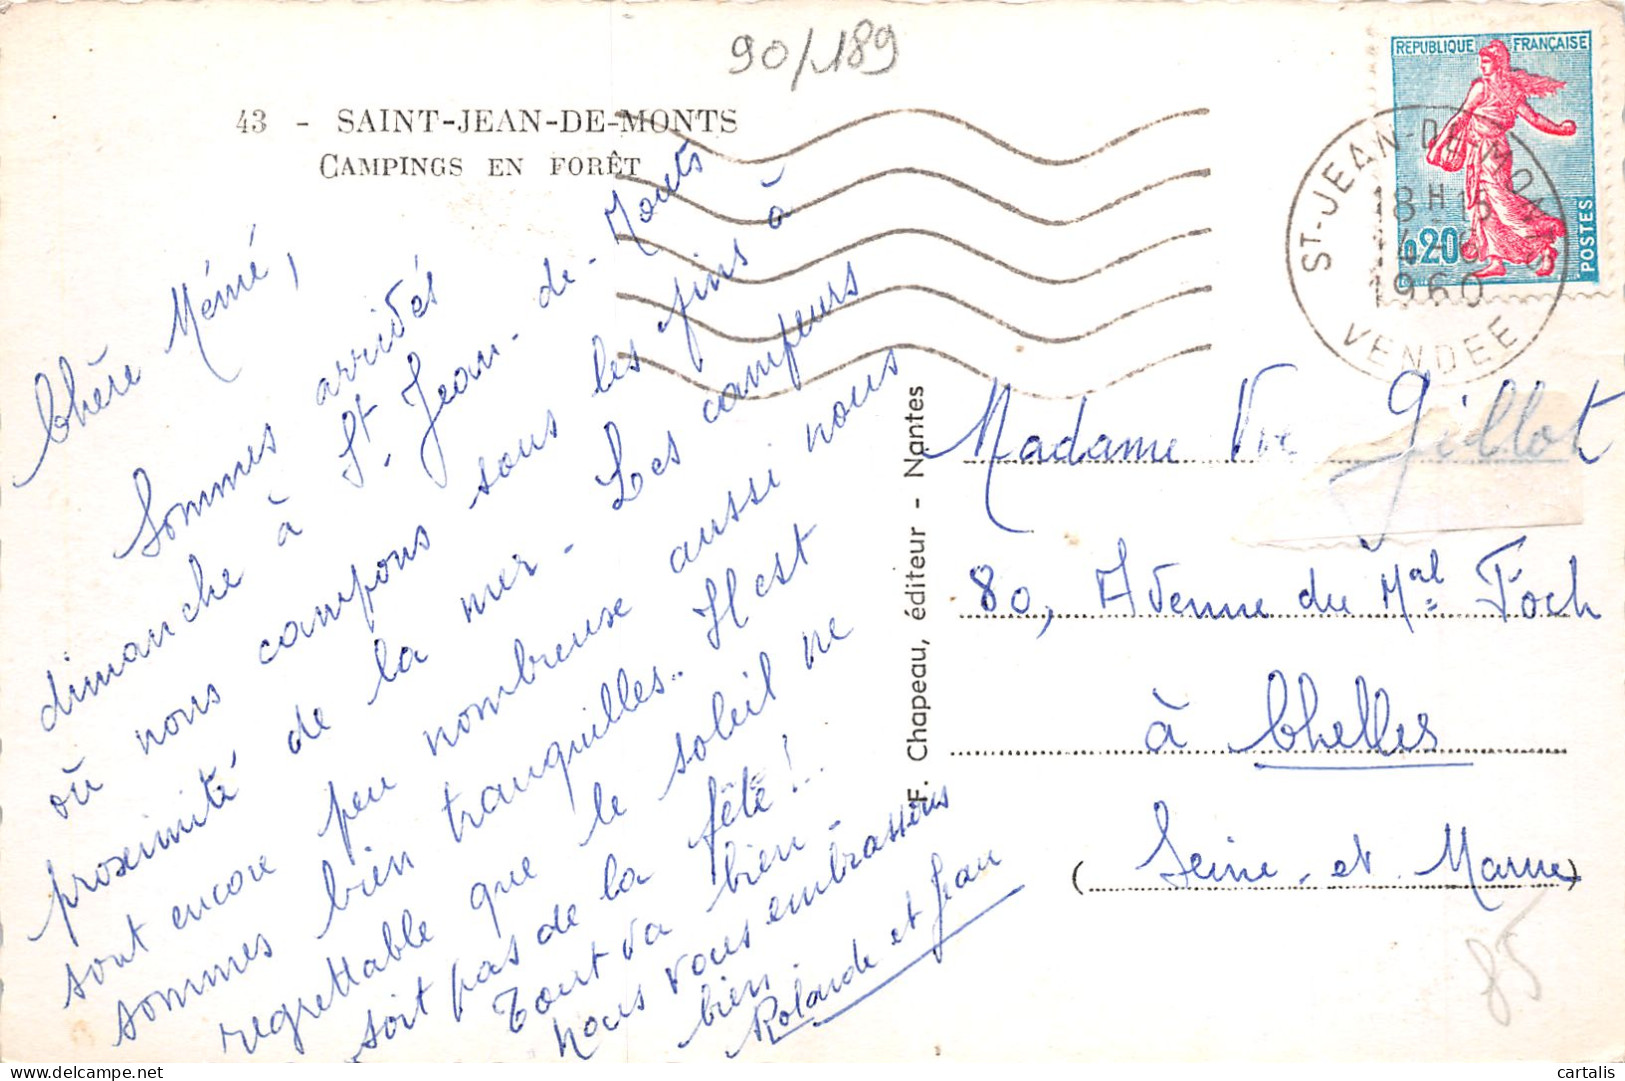 90/189
43 - SAINT-JEAN-DE-MONTS
CAMPINGS EN FORÊT
REPUBLIQUE FRANÇAISE
0,20
POSTES
ST-JEAN-DE-MONTS
18 H 15
14 -6
1960
VENDEE
Chère Mémé,
Sommes arrivés
dimanche à St. Jean-de-Monts
où nous campons sous les pins à
proximité de la mer. Les campeurs
sont encore peu nombreux aussi nous
sommes bien tranquilles.. Il est
regrettable que le soleil ne
soit pas de la fête!..
Tout va bien.
nous vous embrassons
bien
Rolande et Jean
F. Chapeau, éditeur - Nantes
Madame Vve Gillot
80, Avenue du Mal Foch
à Chelles
(Seine-et-Marne)
85
cartalis